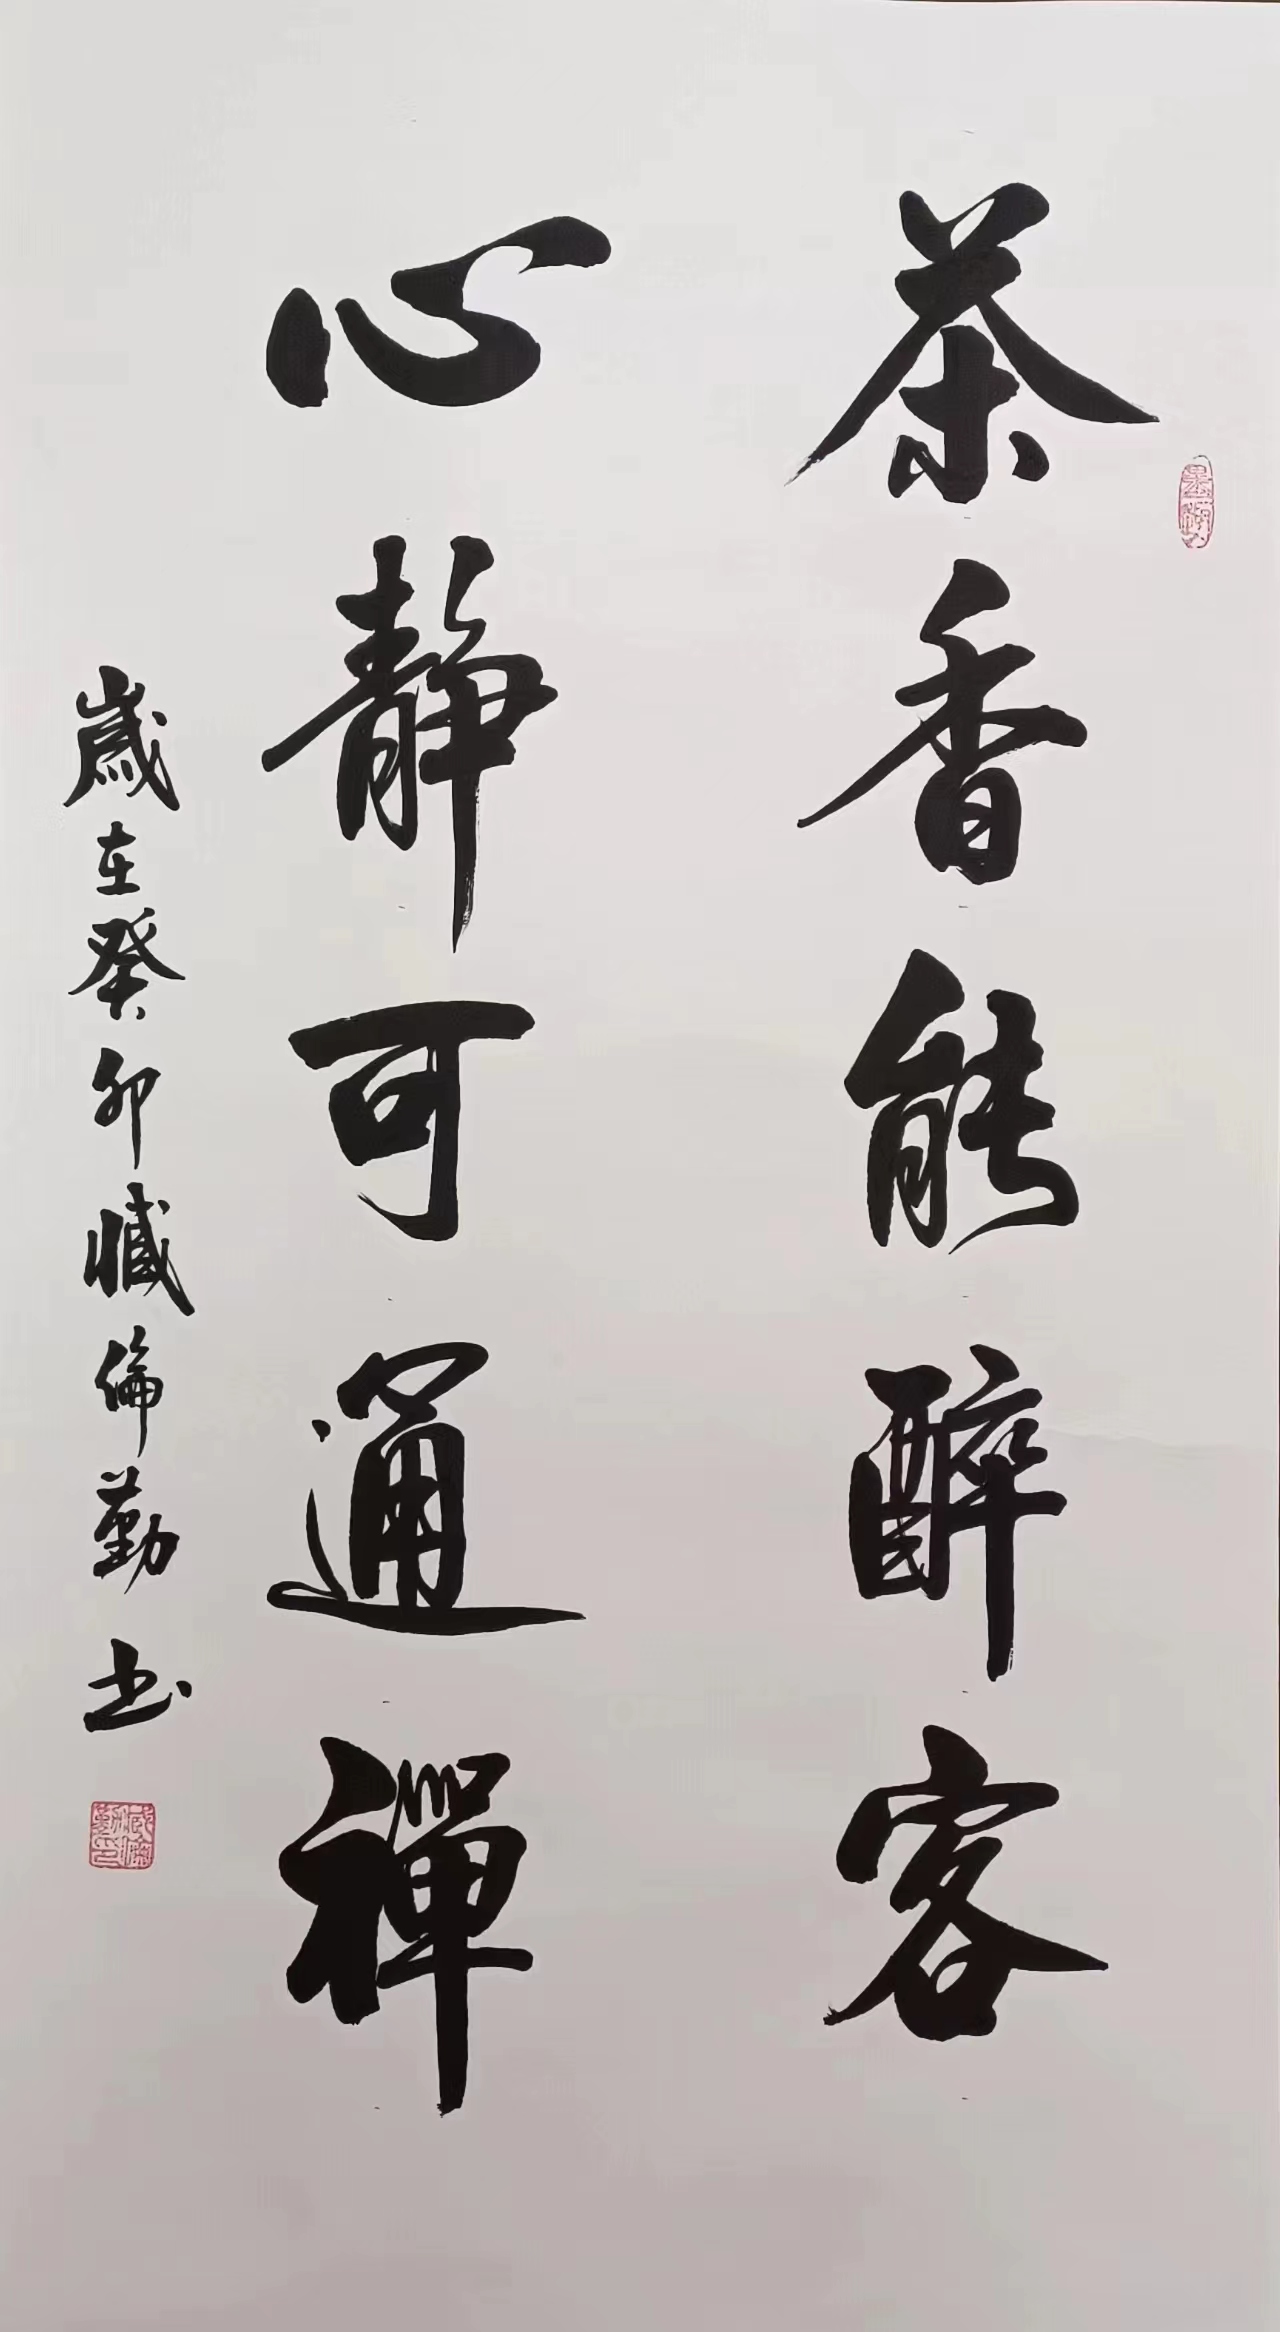 茶香能醉客
心靜可通禪
歲在癸卯臧倫勤书